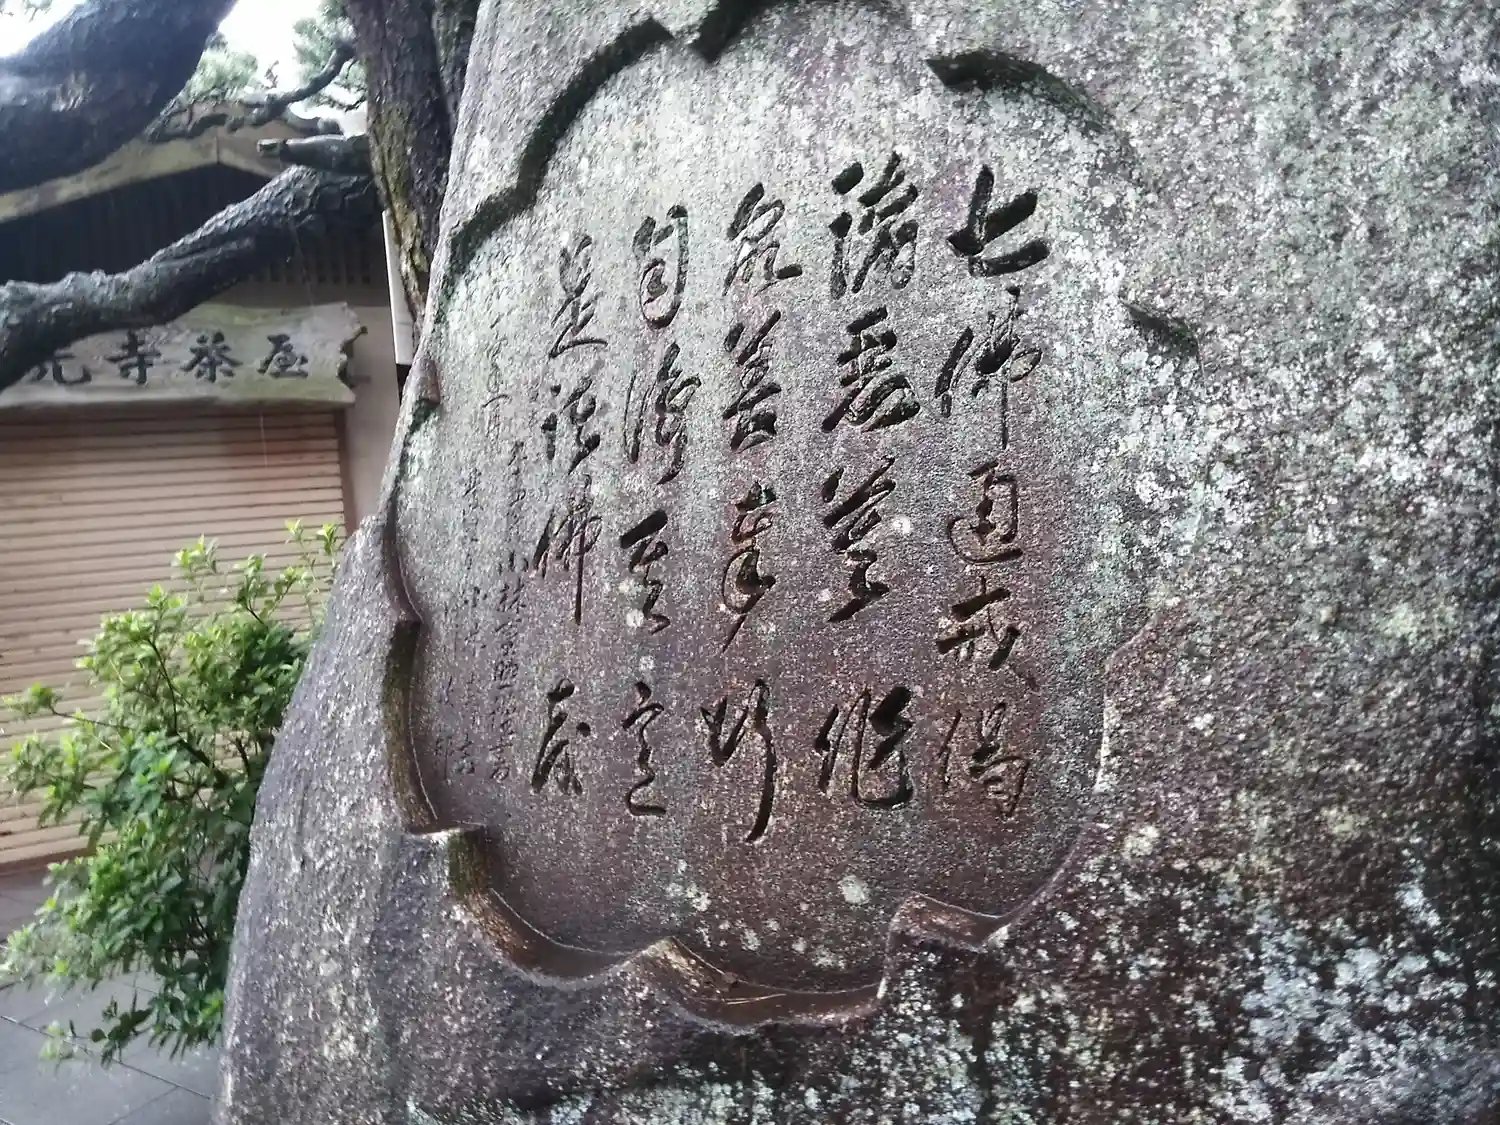 七佛通戒偈
諸悪莫作
衆善奉行
自浄其意
是諸佛教
小林
光寺茶屋